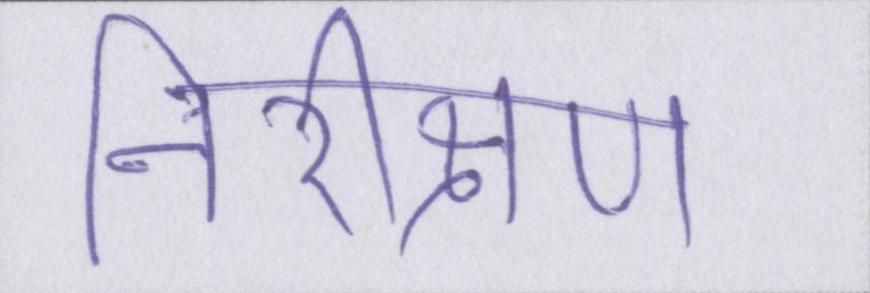 निरीक्षण